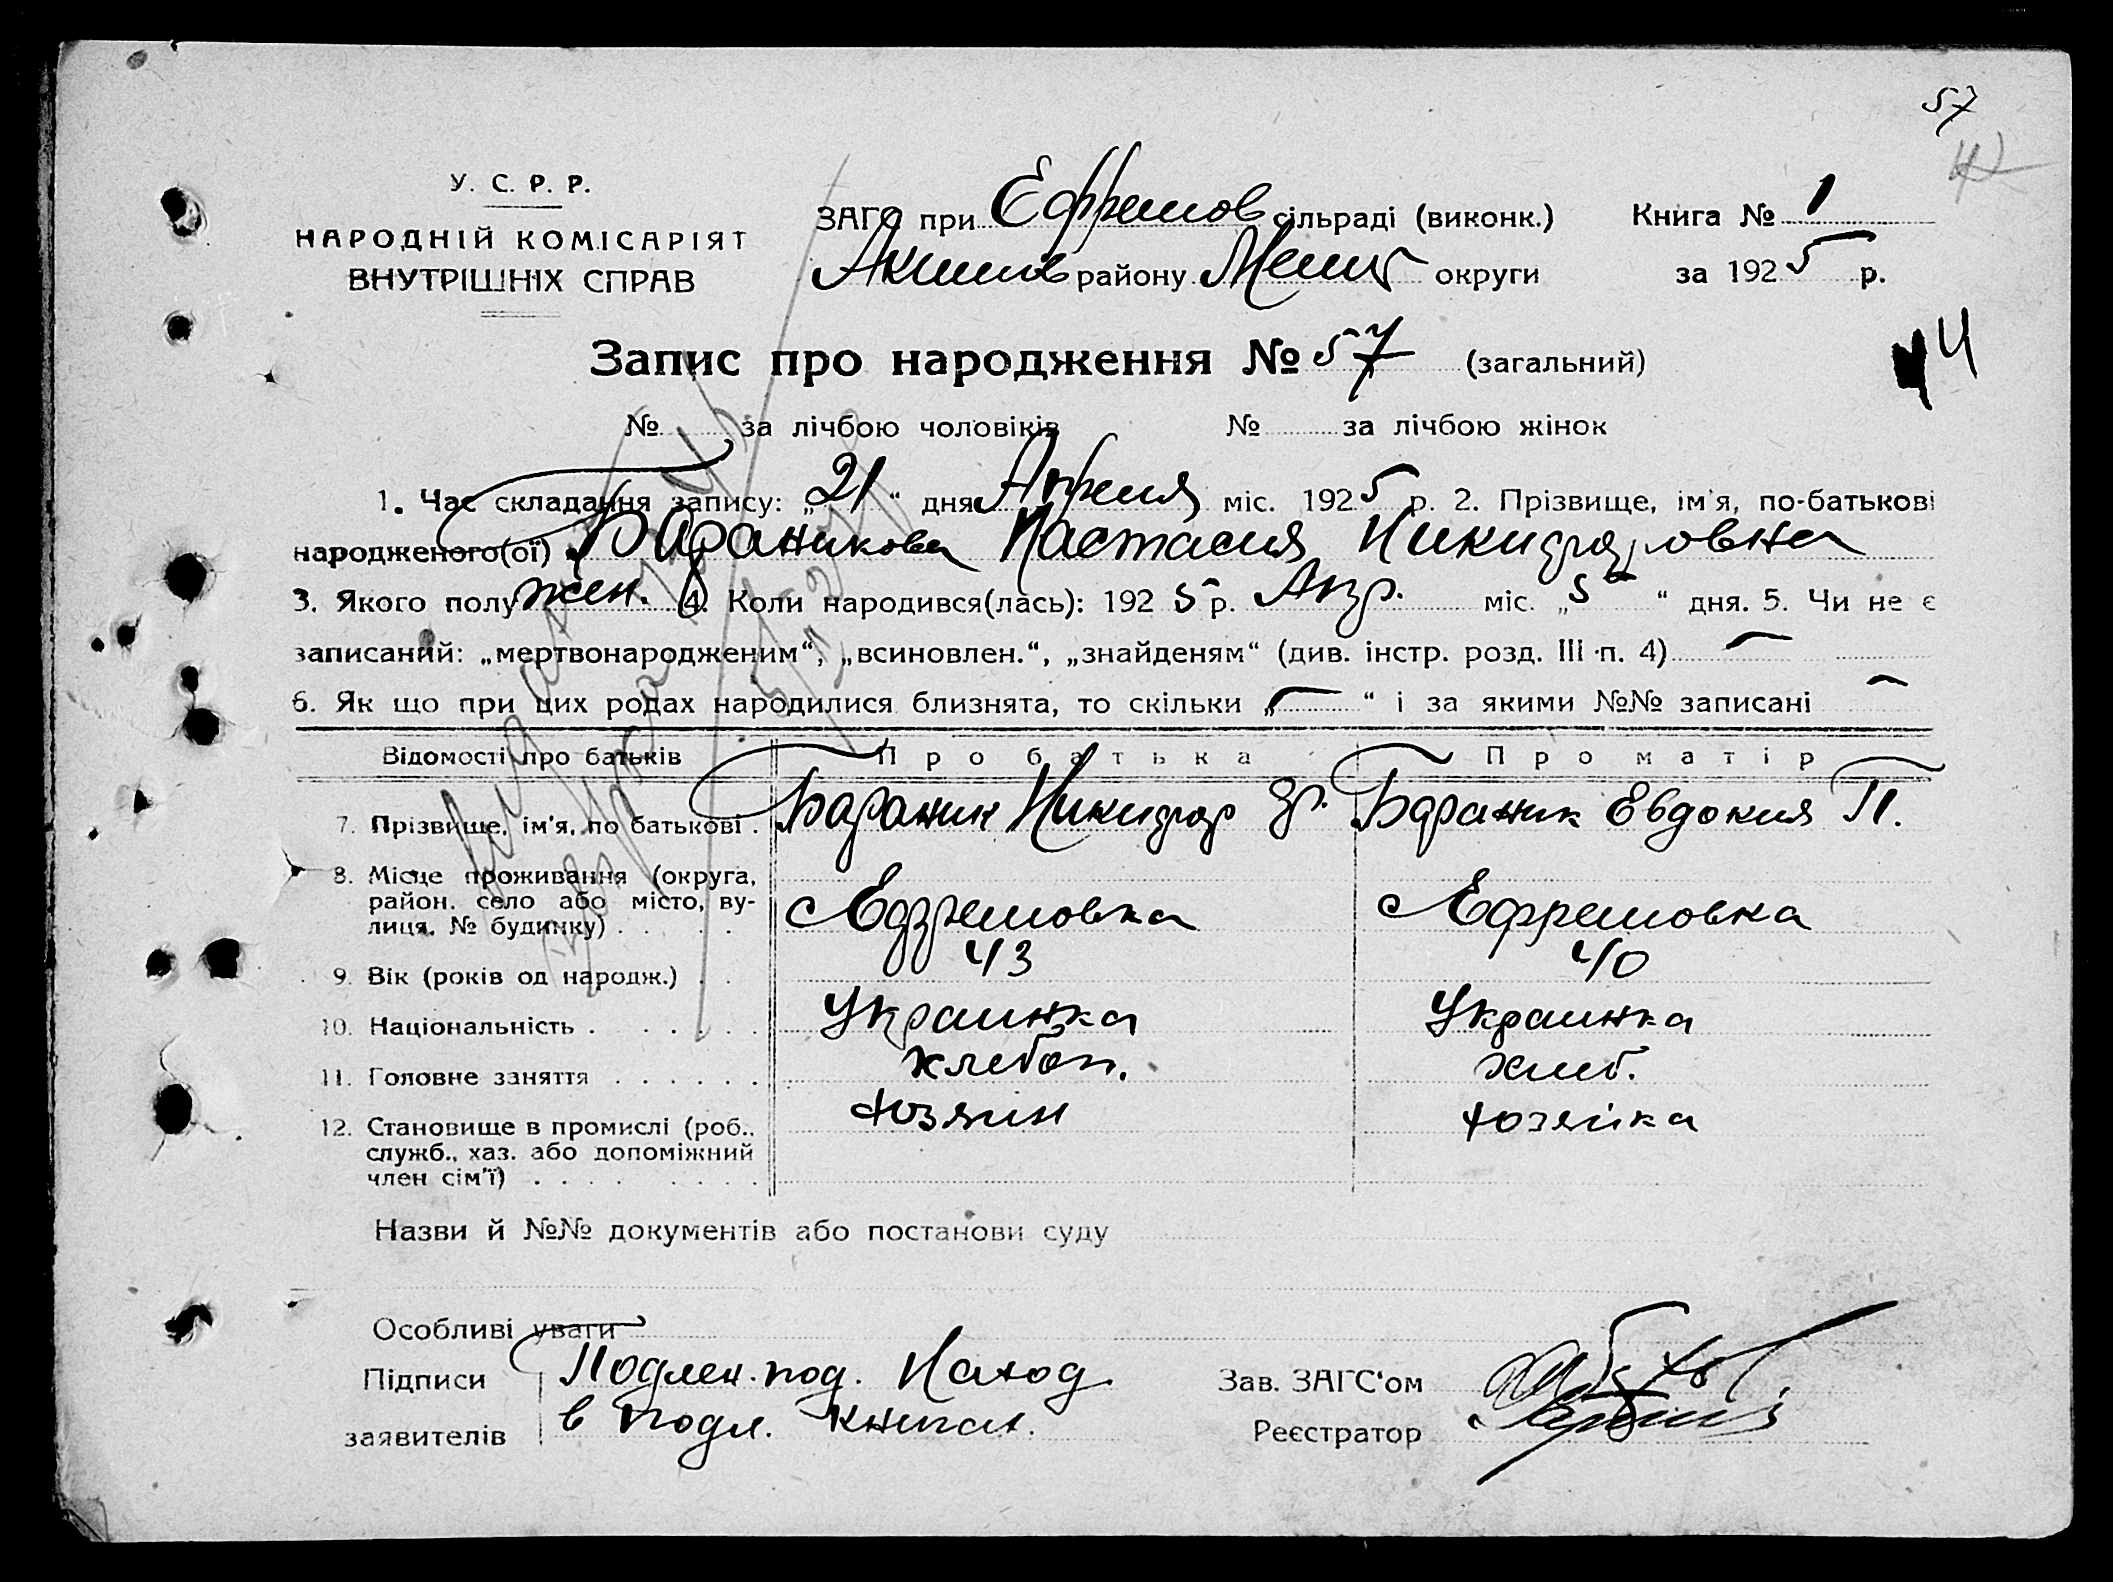 57
У. С. Р. Р.
НАРОДНІЙ КОМІСАРІЯТ
ВНУТРІШНІХ СПРАВ
ЗАГС при Ефремов сільраді (виконк.) Книга № 1
Акимов району Мелит округи за 1925 р.
Запис про народження № 57 (загальний)
44
№ за лічбою чоловіків № за лічбою жінок
1. Час складання запису: „21“ дня Апреля міс. 1925 р. 2. Прізвище, ім'я, по-батькові
народженого(ої) Бараникова Настасия Никифоровна
3. Якого полу жен. 4. Коли народився(лась): 1925 р. Апр. міс. „5“ дня. 5. Чи не є
записаний: „мертвонародженим“, „всиновлен.“, „знайденям“ (див. інстр. розд. III п. 4) —
6. Як що при цих родах народилися близнята, то скільки „—“ і за якими №№ записані —
Відомості про батьків Про батька Про матір
7. Прізвище, ім'я, по батькові . Бараник Никифор Гр. Бараник Евдокия П.
8. Місце проживання (округа,
район, село або місто, ву-
лиця, № будинку) . . . . с Ефремовка с Ефремовка
9. Вік (років од народж.) . . 43 40
10. Національність . . . . . . Украинка Украинка
11. Головне заняття . . . . . . хлебоп. хлеб.
12. Становище в промислі (роб.,
служб., хаз. або допоміжний
член сім'ї) . . . . . . . . хозяин хозяйка
Назви й №№ документів або постанови суду
Особливі уваги
Підписи Подлен. под. Наход.
заявителів в подл. книгах.
Зав. ЗАГС'ом
Реєстратор